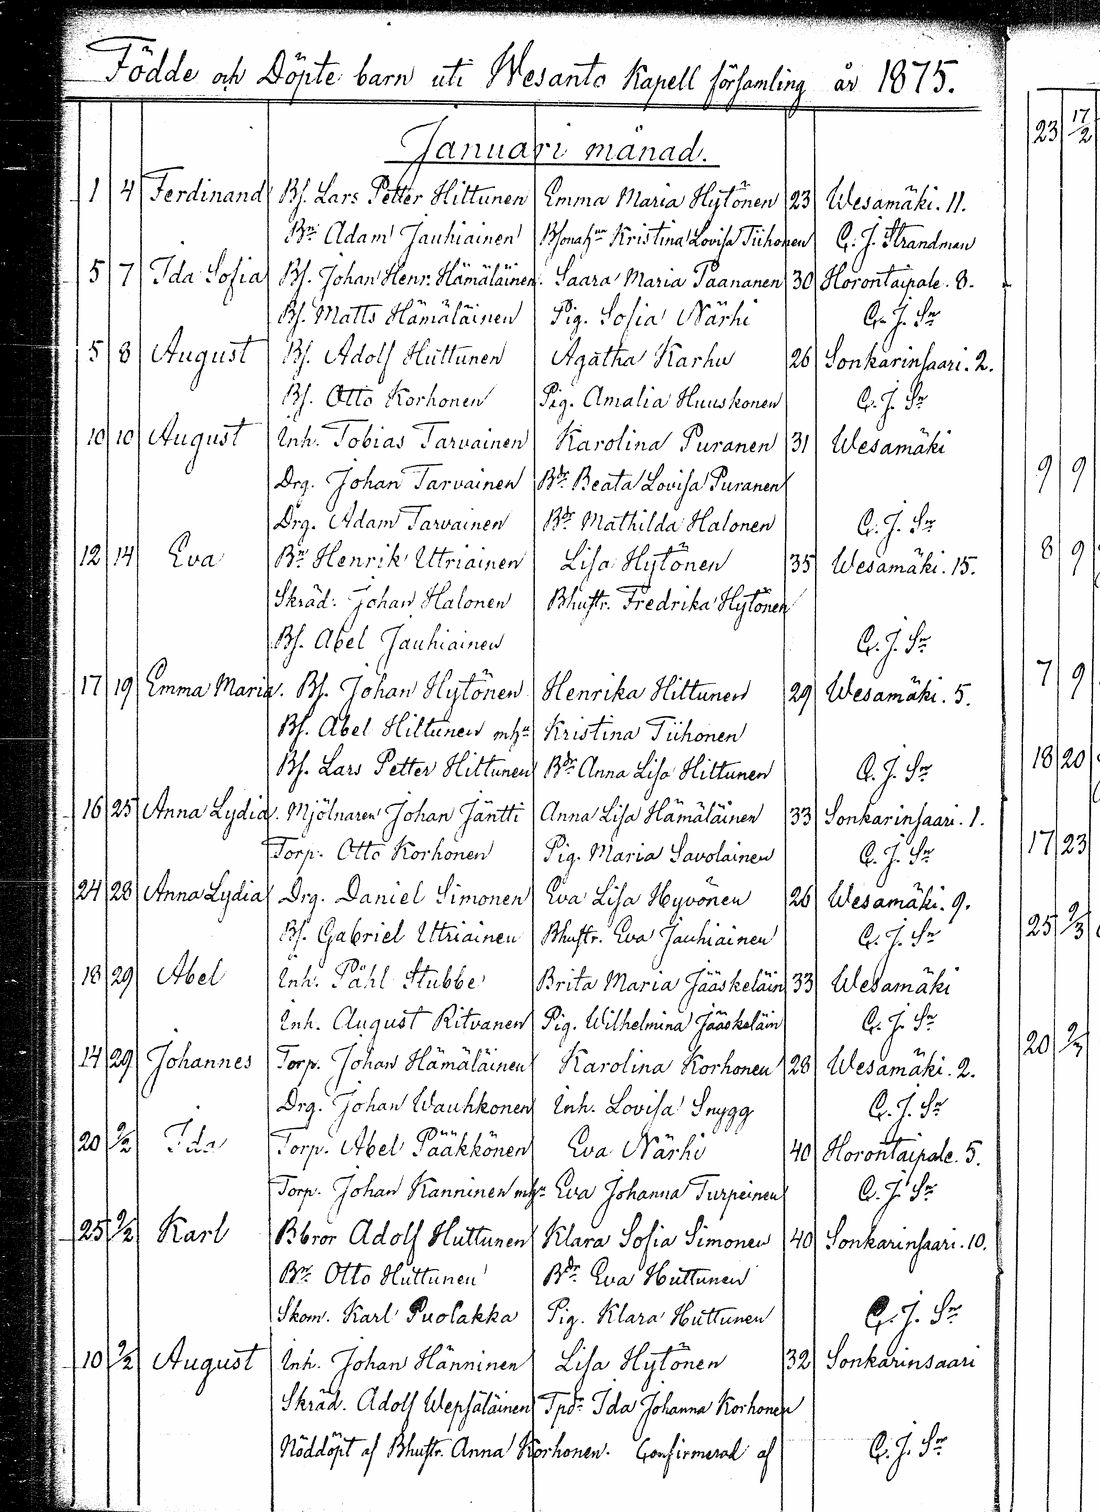 Födde och Döpte barn uti Wesanto Kapell församling år 1875.
Januari månad.
1 4 Ferdinand Bs. Lars Petter Hiltunen Emma Maria Hytönen 23 Wesamäki. 11.
Bn: Adam Jauhiainen Bsonahun Kristina Lovisa Tiihonen C. J. Strandman
5 7 Ida Sofia Bs. Johan Henr. Hämäläinen. Saara Maria Paananen 30 Horontaipale. 8.
Bs. Matts Hämäläinen Pig. Sofia Närhi C. J. Sn
5 8 August Bs. Adolf Huttunen Agatha Karhu 26 Sonkarinsaari. 2.
Bs. Otto Korhonen Pig. Amalia Huuskonen C. J. Sn
10 10 August Inh. Tobias Tarvainen Karolina Puranen 31 Wesamäki
Drg. Johan Tarvainen Bdr Beata Lovisa Puranen
Drg. Adam Tarvainen Bdr Mathilda Halonen C. J. Sn
12 14 Eva Bn Henrik Utriainen Lisa Hytönen 35 Wesamäki. 15.
Skräd. Johan Halonen Bhustr. Fredrika Hytönen
Bs. Abel Jauhiainen C. J. Sn
17 19 Emma Maria. Bs. Johan Hytönen Henrika Hiltunen 29 Wesamäki. 5.
Bs. Abel Hiltunen mhn Kristina Tiihonen
Bs. Lars Petter Hiltunen Bdr Anna Lisa Hiltunen C. J. Sn
16 25 Anna Lydia. Mjölnaren Johan Jäntti Anna Lisa Hämäläinen 33 Sonkarinsaari. 1.
Torp. Otto Korhonen Pig. Maria Savolainen C. J. Sn
24 28 Anna Lydia Drg. Daniel Simonen Eva Lisa Hyvönen 26 Wesamäki. 9.
Bs. Gabriel Utriainen Bhustr. Eva Jauhiainen C. J. Sn
18 29 Abel Inh. Påhl Stubbe Brita Maria Jääskeläin 33 Wesamäki
Inh. August Ritvanen Pig. Wilhelmina Jääskeläin C. J. Sn
14 29 Johannes Torp. Johan Hämäläinen Karolina Korhonen 28 Wesamäki. 2.
Drg. Johan Wauhkonen Inh. Lovisa Snygg C. J. Sn
20 2/2 Ida Torp. Abel Pääkkönen Eva Närhi 40 Horontaipale. 5.
Torp. Johan Kanninen mhn Eva Johanna Turpeinen C. J. Sn
25 2/2 Karl Bbror Adolf Huttunen Klara Sofia Simonen 40 Sonkarinsaari. 10.
Bn Otto Huttunen Bdr Eva Huttunen
Skom. Karl Puolakka Pig. Klara Huttunen C. J. Sn
10 2/2 August Inh. Johan Hänninen Lisa Hytönen 32 Sonkarinsaari
Skräd. Adolf Wepsäläinen Tpdr Ida Johanna Korhonen
Nöddöpt af Bhustr. Anna Korhonen. Confirmerad af C. J. Sn
23 17/2
9 9
8 9
7 9
18 20
17 23
25 2/3
20